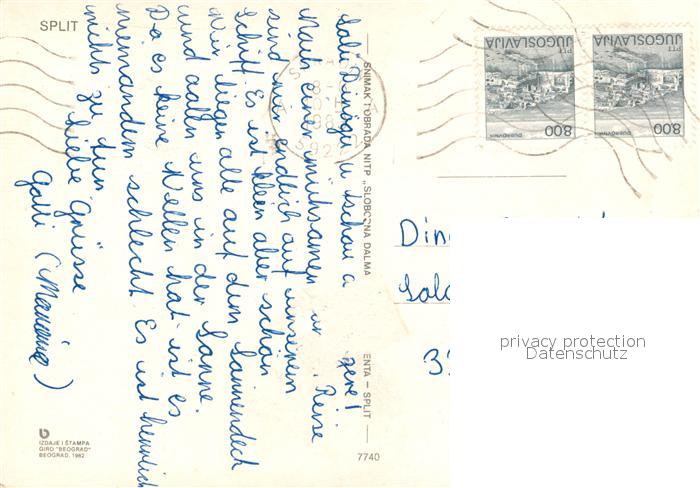 SPLIT
Sali Dinogu u tschau a
zere!
Nach einer mühsamen Reise
sind wir endlich auf unserem
Schiff. Es ist klein aber schön
Wir liegen alle auf dem Sonnendeck
und aalen uns in der Sonne.
Da es keine Wellen hat ist es
niemandem schlecht. Es ist herrlich
nichts zu tun
Liebe Grüsse
SNIMAK I OBRADA NITP „SLOBODNA DALMA
ENTA – SPLIT
7740
IZDAJE I ŠTAMPA
GIRO "BEOGRAD"
BEOGRAD, 1982
PTT JUGOSLAVIJA
DUBROVNIK
8.00
PTT JUGOSLAVIJA
DUBROVNIK
8.00
Din
privacy protection
Datenschutz